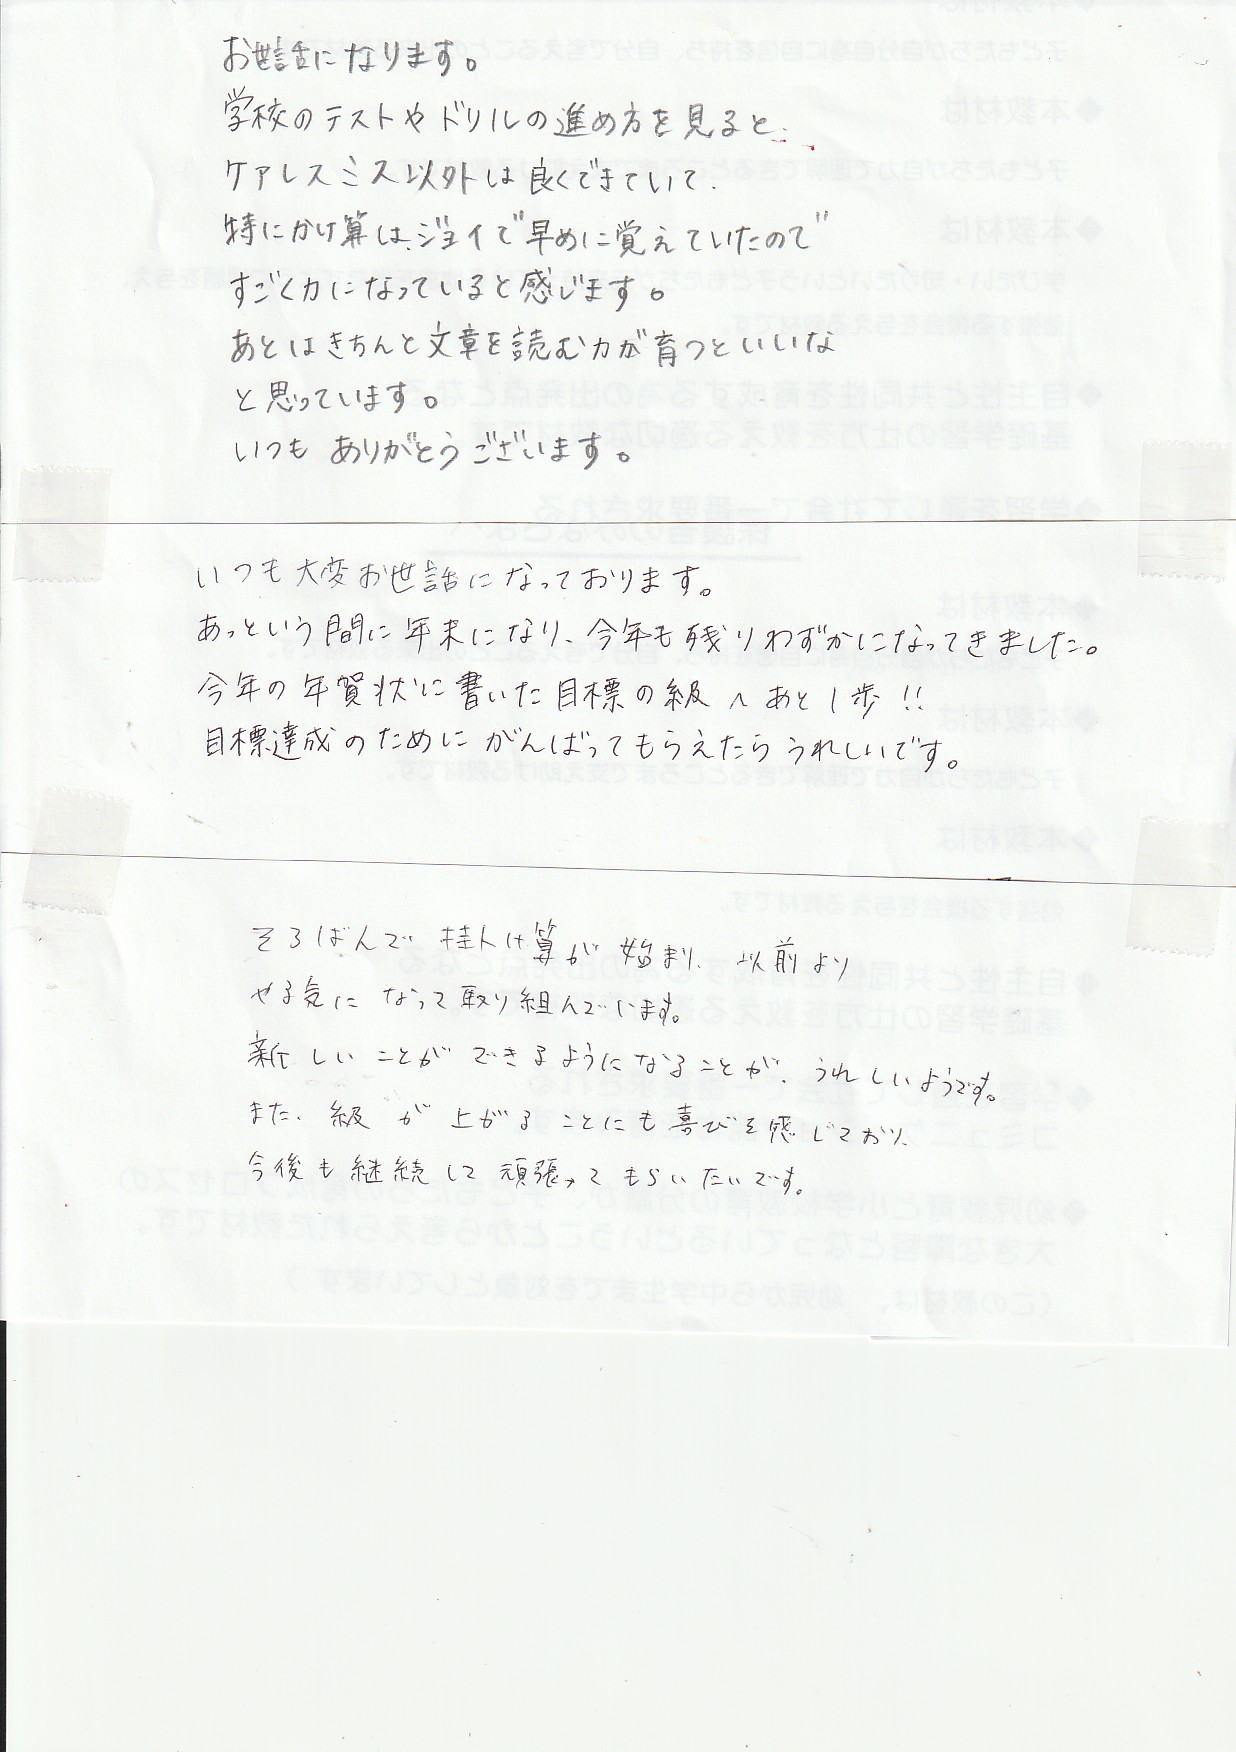 お世話になります。
学校のテストやドリルの進め方を見ると、
ケアレスミス以外は良くできていて、
特にかけ算は、ジョイで早めに覚えていたので
すごく力になっていると感じます。
あとはきちんと文章を読む力が育つといいな
と思っています。
いつも ありがとうございます。
いつも大変お世話になっております。
あっという間に年末になり、今年も残りわずかになってきました。
今年の年賀状に書いた目標の級へあと1歩!!
目標達成のためにがんばってもらえたらうれしいです。
そろばんで掛け算が始まり、以前より
やる気になって取り組んでいます。
新しいことができるようになることが、うれしいようです。
また、級が上がることにも喜びを感じており、
今後も継続して頑張ってもらいたいです。